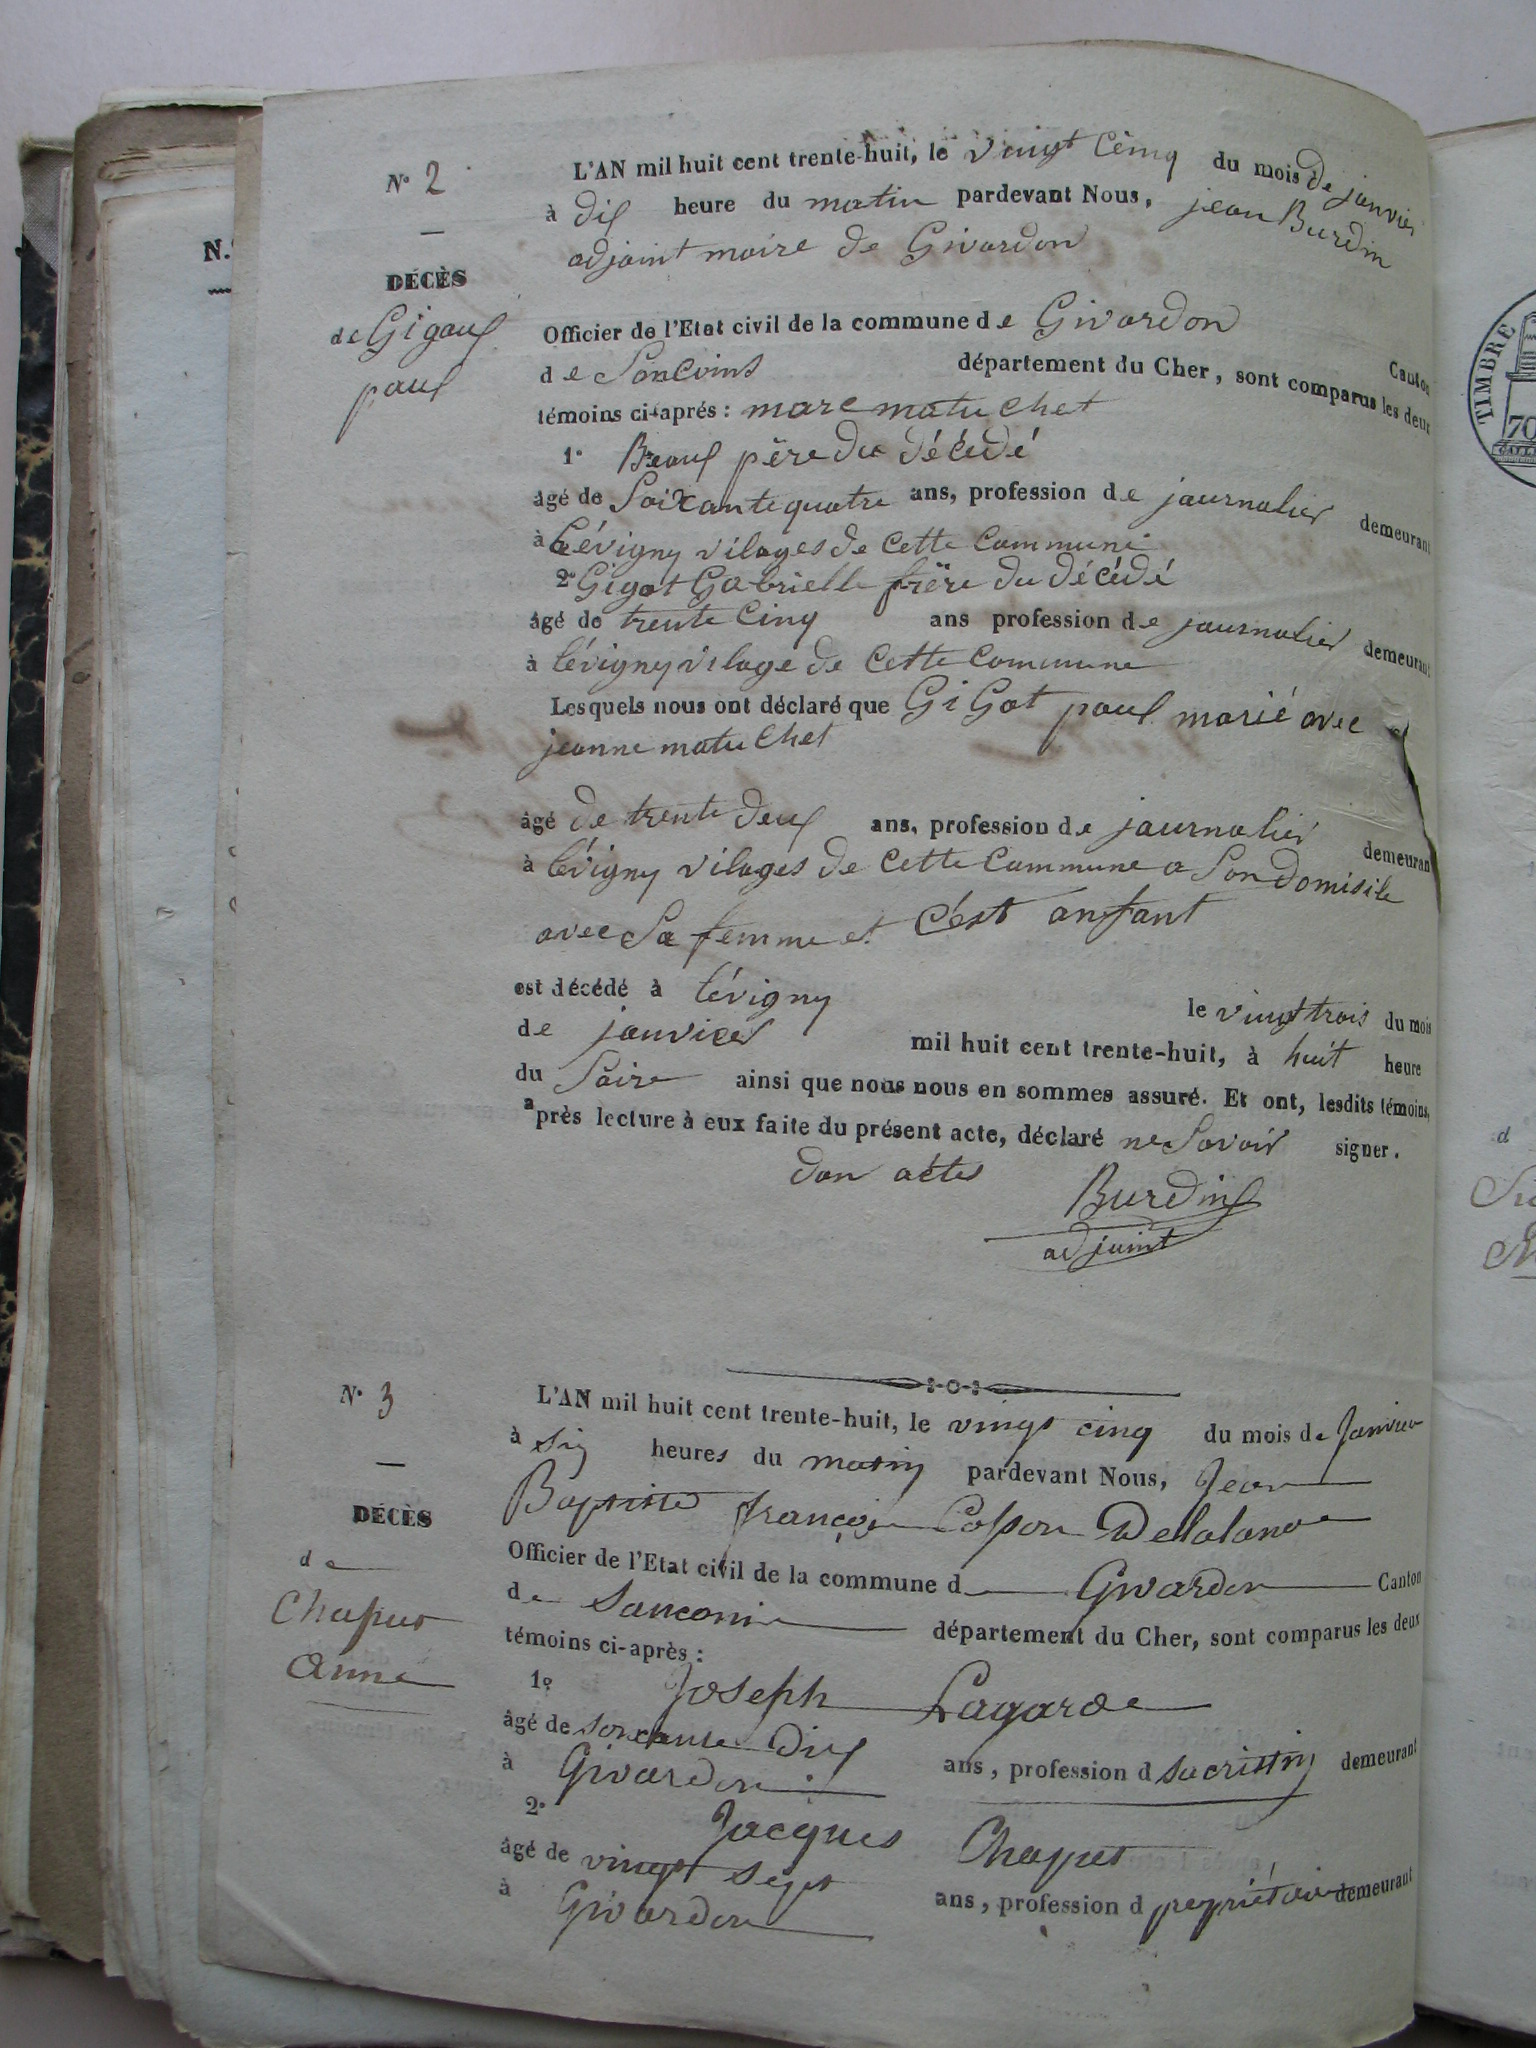 N° 2
DÉCÈS
de Gigaux
paul
L'AN mil huit cent trente-huit, le vingt cinq du mois de janvier
à dix heure du matin pardevant Nous, jean Burdin
adjoint maire de Givardon
Officier de l'Etat civil de la commune de Givardon Canton
de Soncoins département du Cher, sont comparus les deux
témoins ci-après : marc matuchet
1° Beauf père du décédé
âgé de Soixante quatre ans, profession de journalier demeurant
à Lévigny vilages de cette commune
2° Gigot Gabrielle frère du décédé
âgé de trente cinq ans profession de journalier demeurant
à lévigny vilage de cette commune
Lesquels nous ont déclaré que GiGot paul marié avec
jeanne matuchet
âgé de trente deux ans, profession de journalier demeuran
à lévigny vilages de cette commune a Son domisile
avec Sa femme et c'est anfant
est décédé à lévigny le vingt trois du mois
de janvier mil huit cent trente-huit, à huit heure
du Soire ainsi que nous nous en sommes assuré. Et ont, lesdits témoins,
après lecture à eux faite du présent acte, déclaré ne Savoir signer.
don actes
Burdin
adjoint
N° 3
DÉCÈS
de
Chaput
Anne
L'AN mil huit cent trente-huit, le vingt cinq du mois de Janvier
à six heures du matin pardevant Nous, Jean
Baptiste françois Delalande
Officier de l'Etat civil de la commune d Givardon Canton
de Sancoins département du Cher, sont comparus les deux
témoins ci-après :
1° Joseph Lagarde
âgé de soixante dix ans, profession d sacristin demeurant
à Givardon
2° Jacques Chaput
âgé de vingt sept ans, profession d propriétaire demeurant
à Givardon
N.
TIMBRE
70
d